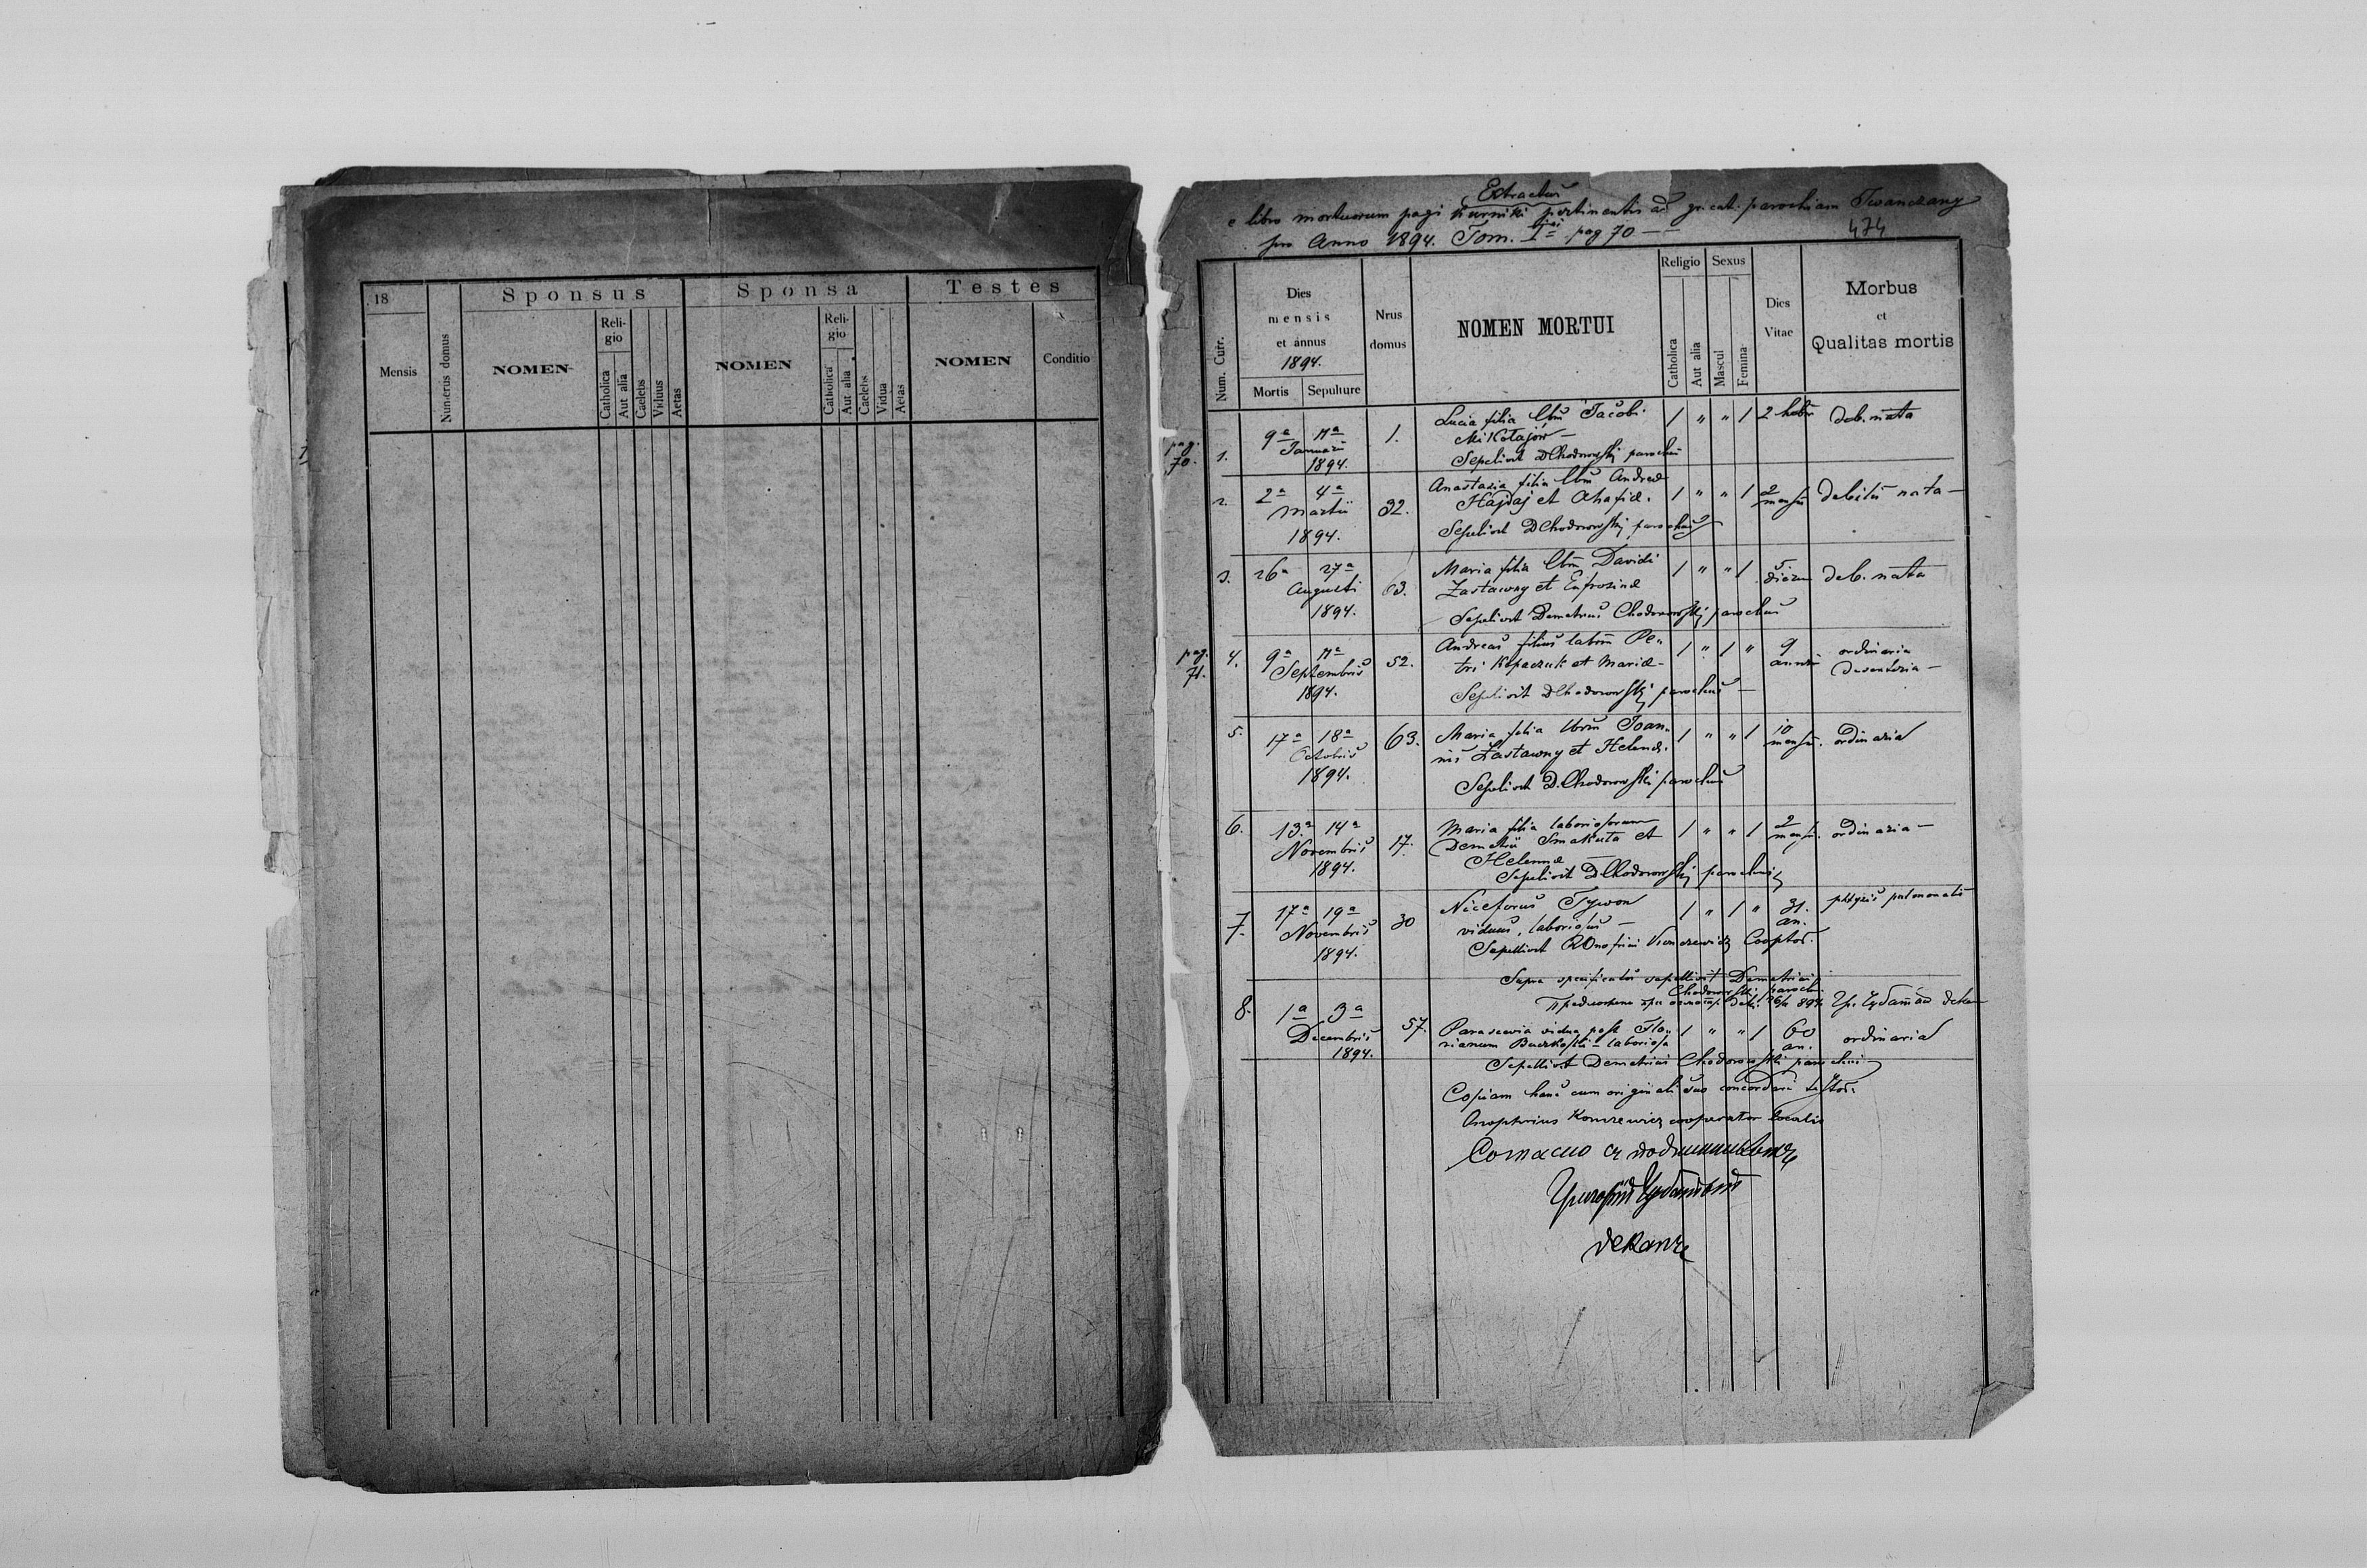 18
Sponsus
Sponsa
Testes
Mensis
Numerus domus
NOMEN
Reli-
gio
Catholica
Aut alia
Caelebs
Viduus
Aetas
NOMEN
Reli-
gio
Catholica
Aut alia
Caelebs
Vidua
Aetas
NOMEN
Conditio
Extractus
e libro mortuorum pagi Kurniki pertinentis ad gr. cat. parochiam Iwanczany
pro Anno 1894. Tom. I pag 70 —
474
Num. Curr.
Dies
mensis
et annus
1894.
Mortis
Sepulture
Nrus
domus
NOMEN MORTUI
Religio
Catholica
Aut alia
Sexus
Mascul
Femina
Dies
Vitae
Morbus
et
Qualitas mortis
pag.
70.
1. 9a 11a 1. Lucia filia Jacobi 1 " " 1 2 deb. nata
Januarii Mikołajów —
1894. Sepelivit DChodorowskij parochus
2. 2a 4a 32. Anastasia filia Andreae 1 " " 1 2 debilis nata —
Martii Hajdaj et Ahafiae.
1894. Sepelivit DChodorowskij parochus
3. 26a 27a 63. Maria filia Davidi 1 " " 1 dierum deb. nata
Augusti Zastawny et Eufrosinae
1894. Sepelivit Demetrius Chodorowskij parochus
pag.
71.
4. 9a 11a 52. Andreas filius labor Pe- 1 " 1 " 9 ordinaria
Septembris tri Kopaczuk et Mariae — annor
1894. Sepelivit DChodorowskij parochus —
5. 17a 18a 63. Maria filia Joan- 1 " " 1 10 mens. ordinaria
Octobris nis Zastawny et Helenae.
1894. Sepelivit D. Chodorowskij parochus
6. 13a 14a 17. Maria filia laboriosorum 1 " " 1 2 mens. ordinaria —
Novembris Demetrii Smakuta et
1894. Helenae
Sepelivit DChodorowskij parochus
7. 17a 19a 30 Niceforus Tywon 1 " 1 " 31. an. phtysis pulmonalis
Novembris viduus, laboriosus —
1894. Sepellivit Cooptor.
Supra specificatos sepellivit Demetrius
Chodorowskij paroch.
8. 1a 3a 57. Parascevia vidua post Flo- 1 " " 1 60 an. ordinaria
Decembris rianum Buczkoski — laboriosa
1894. Sepellivit Demetrius Chodorowskij parochus
Copiam hanc cum originali suo concordare testor.
Konczewicz cooperator localis
Согласно съ
Григорій
деканъ